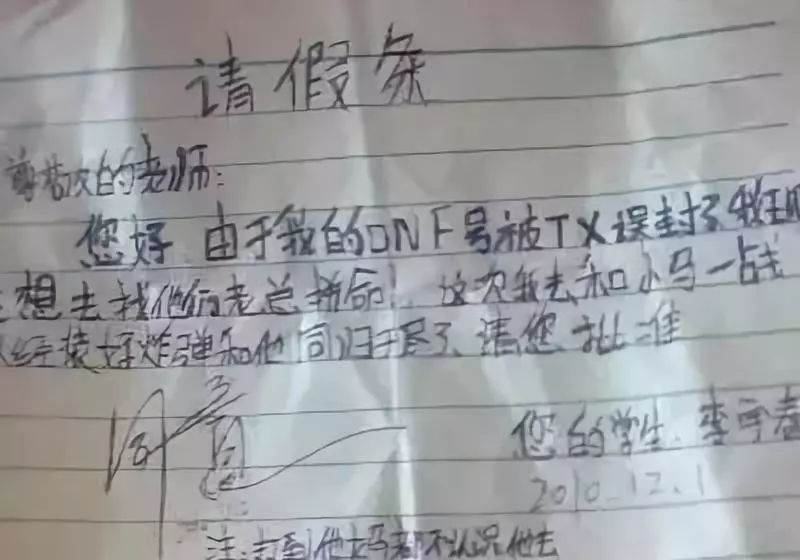 请假条
尊敬的老师:
您好 由于我的DNF号被TX误封了 我现
想去找他们老总拼命! 这次我去和小马一战
经装好炸弹和他同归于尽了、请您批准
同意
您的学生、李宇春
2010.12.1
注:打到他妈都不认识他去